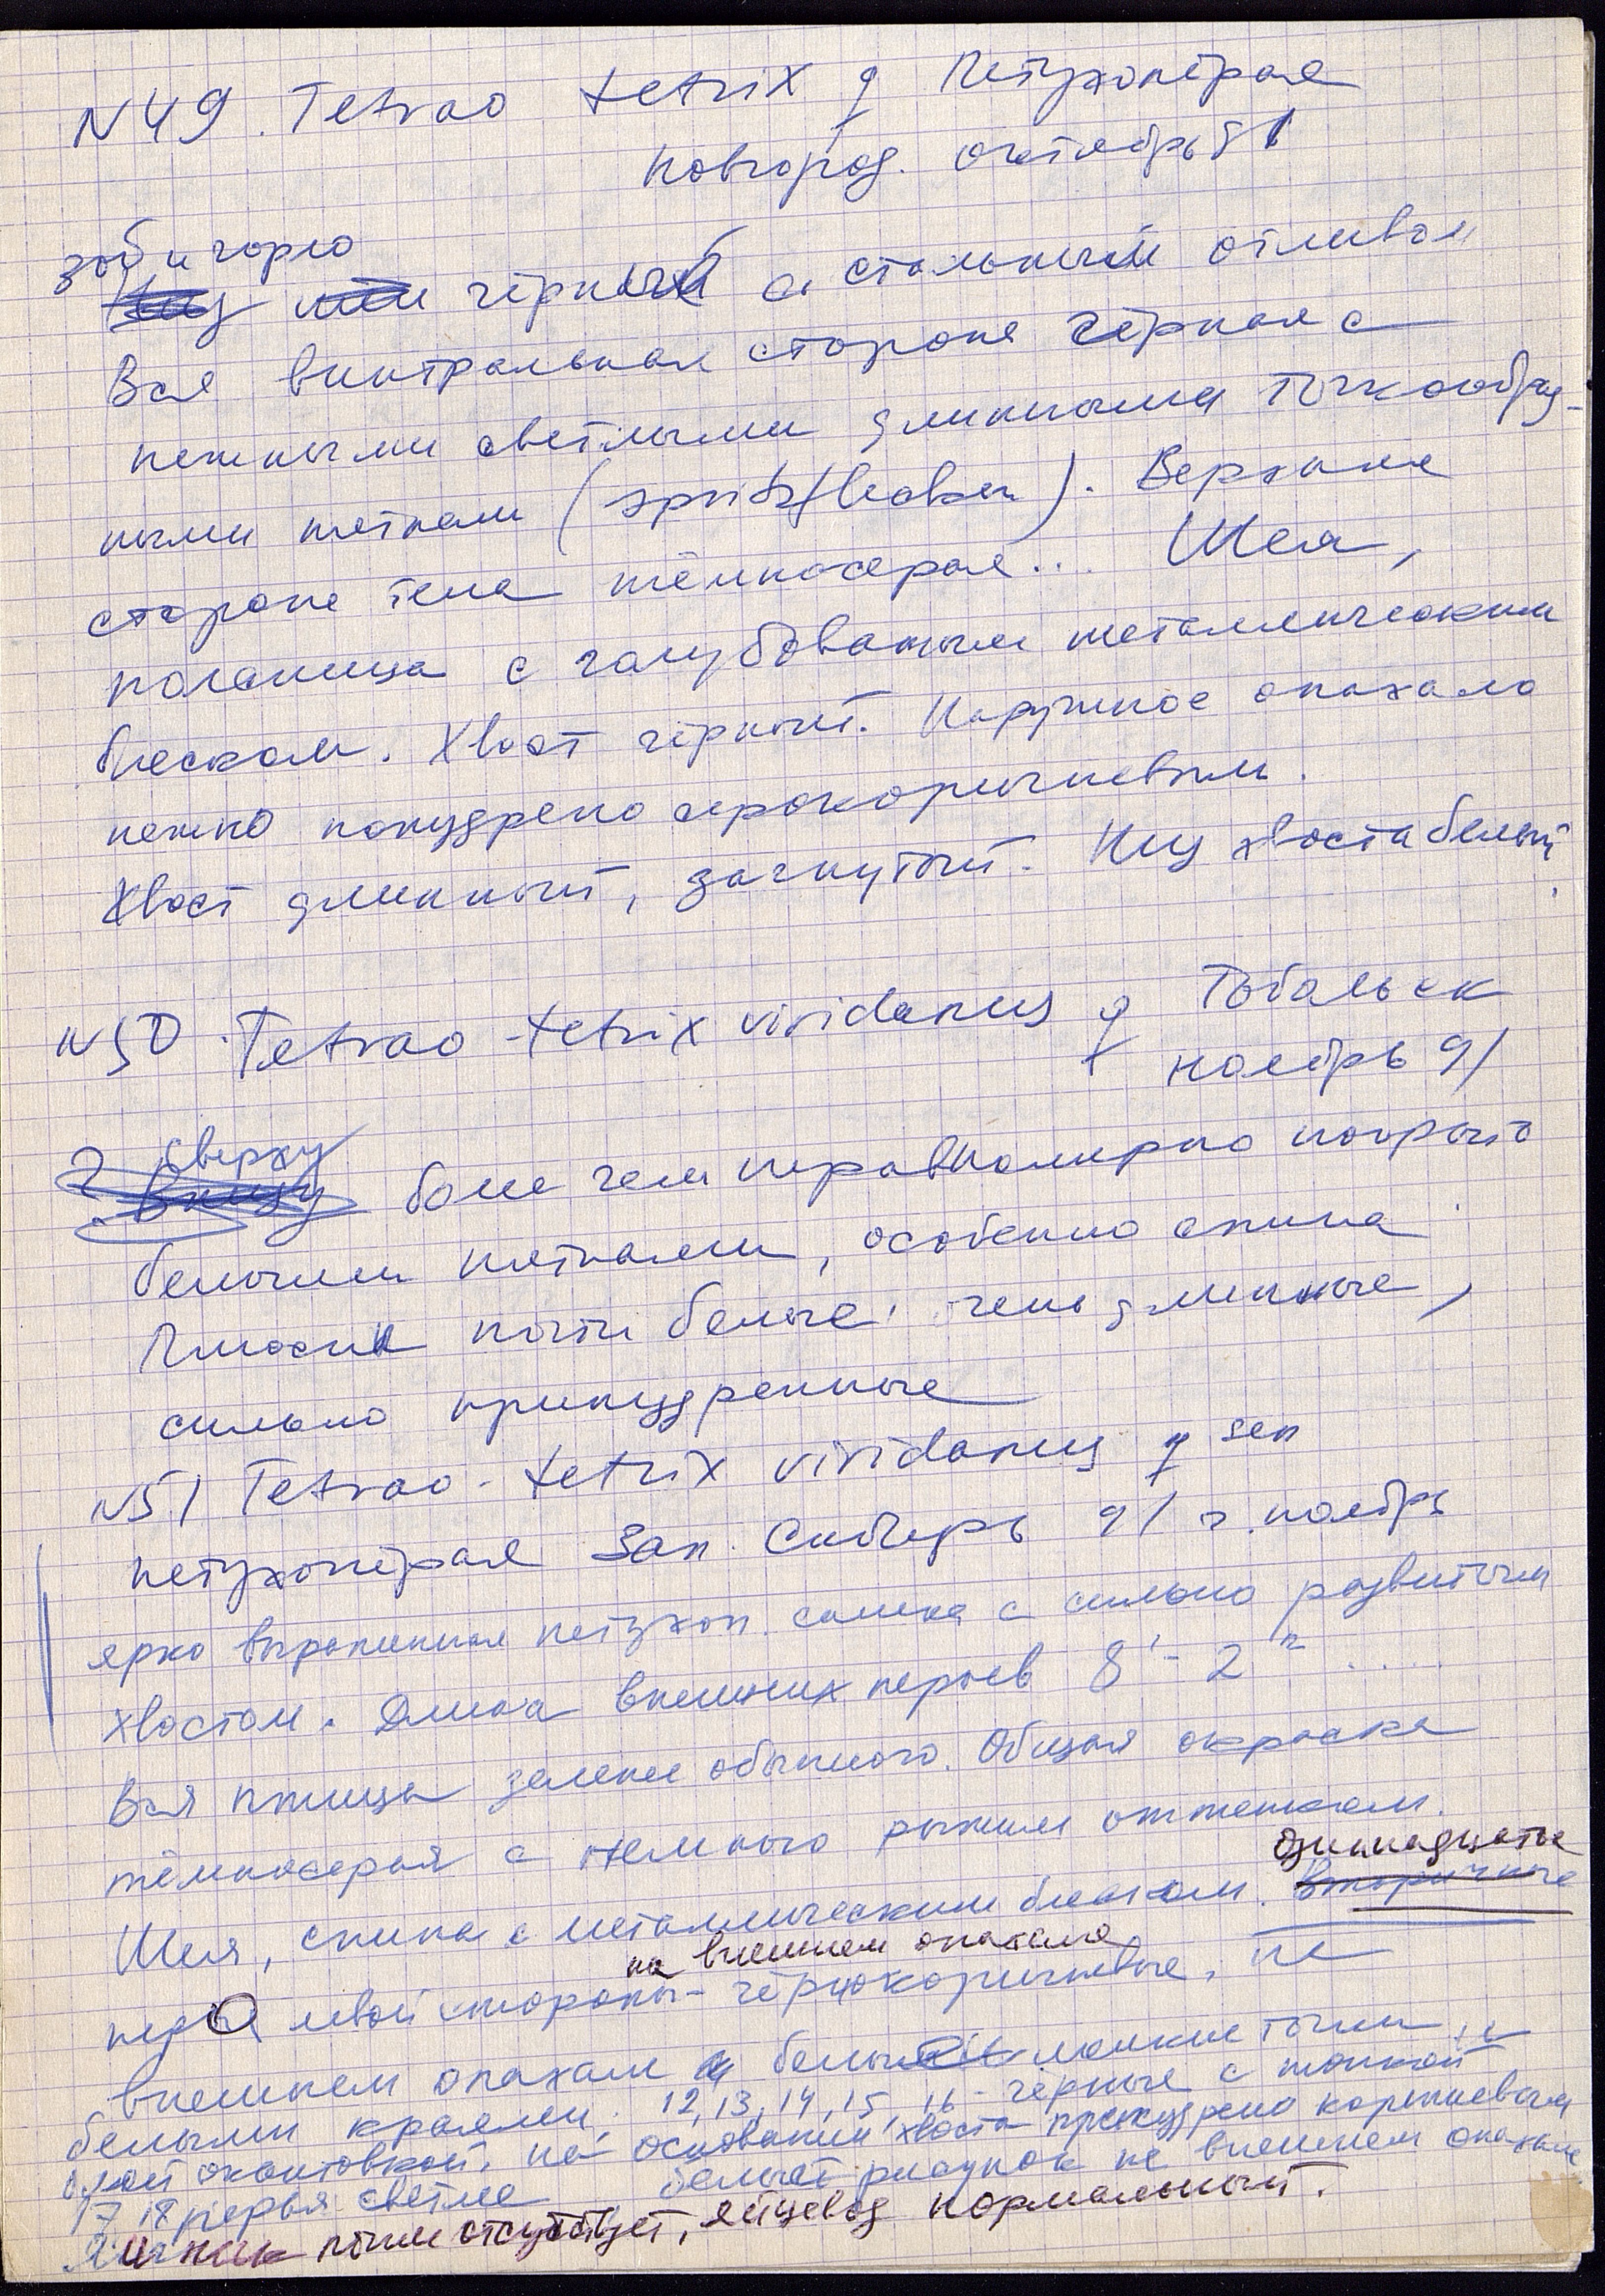 N 49. Tetrao tetrix ♀ Петухопёрая
Новгород. октябрь 91
зоб и горло
чёрный со стальным отливом
Вся вентральная сторона чёрная с
нежными светлыми длинными точкообраз-
ными пятнами (spritzflecken). Верхняя
сторона тела тёмносерая... Шея,
поясница с голубоватым металлическим
блеском. Хвост чёрный. Наружное опахало
нежно попудрено серокоричневым.
Хвост длинный, загнутый. Низ хвоста белый
N 50. Tetrao-tetrix viridanus ♀ Тобольск
ноябрь 91
? Сверху
Внизу более чем неравномерно покрыто
белыми пятнами, особенно спина
Плюсна почти белые,
сильно припудренные
N 51 Tetrao-tetrix viridanus ♀ sen
петухопёрая Зап. Сибирь 91 г. ноябрь
ярко выраженная петухоп. самка с сильно развитым
хвостом. Длина внешних перьев 8' - 2" ....
Вся птица обычного. Общая окраска
тёмносерая с немного рыжим оттенком.
одиннадцатое
Шея, спина с металлическим блеском. Вторичные
на внешнем опахале
перо левой стороны - чёрнокоричневые, на
внешнем опахале белые мелкие точки, и
белыми краями. 12, 13, 14, 15, 16 - чёрные с тонкой
окантовкой. На основании хвоста припудрено коричневым
17, 18 перья светлые белый рисунок на внешнем опахале
Яичник почти отсутствует, яйцевод нормальный.